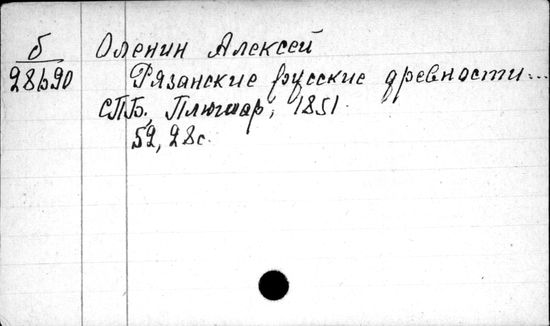 б Оленин Алексей
28690 Рязанские русские древности...
СПБ, Плюшар, 1851.
52, 28с.